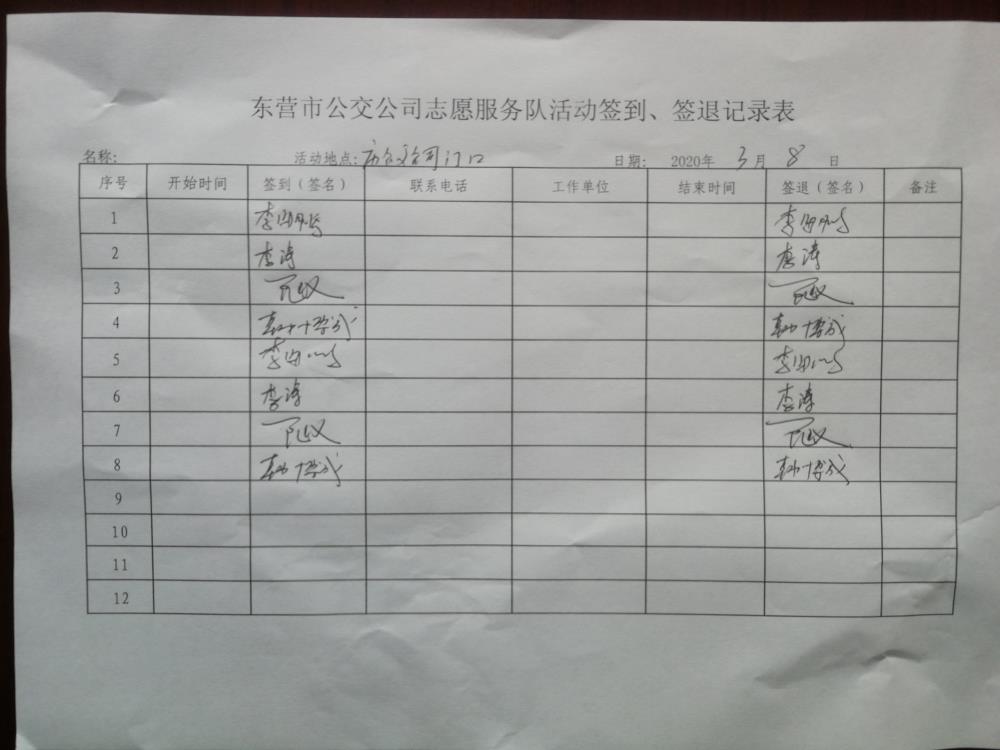 东营市公交公司志愿服务队活动签到、签退记录表
名称: 活动地点:市公交公司门口 日期: 2020年 3月 8 日
序号 开始时间 签到（签名） 联系电话 工作单位 结束时间 签退（签名） 备注
1
2 李涛 李涛
3
4 韩博成 韩博成
5
6 李涛 李涛
7
8 韩博成 韩博成
9
10
11
12